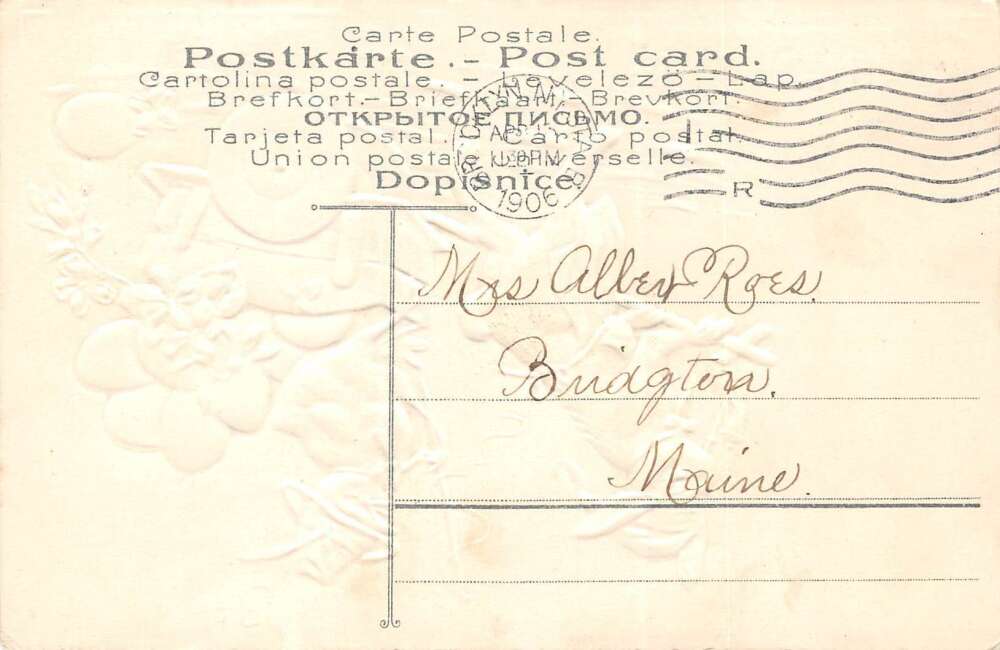 Carte Postale.
Postkarte.- Post card.
Cartolina postale. – Levelező – Lap.
Brefkort.– Briefkaart. Brevkort.
ОТКРЫТОЕ ПИСЬМО.
Tarjeta postal. Carto postal.
Union postale universelle.
Dopisnice
1906
R
Mrs Albert Roes.
Bridgton.
Maine.